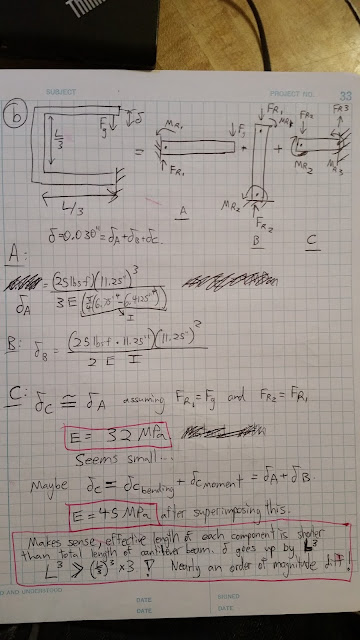 SUBJECT PROJECT NO. 33
b
Fg δ
L/3
L/3
= MR1 FR1 Fg + FR1 MR1 MR2 FR2 + FR2 MR2 FR3 MR3
A B C
δ = 0.030" = δA + δB + δC.
A:
δA = (25 lbsf)(11.25")³
3E( I )
B: δB = (25 lbsf · 11.25")(11.25")²
2 E I
C: δC ≅ δA assuming FR1 = Fg and FR2 = FR1
E = 32 MPa
Seems small...
Maybe δC = δC bending + δC moment = δA + δB.
E = 45 MPa after superimposing this.
Makes sense, effective length of each component is shorter
than total length of cantilever beam. δ goes up by L³
L³ >> (L/3)³ × 3 ! Nearly an order of magnitude diff!
AD AND UNDERSTOOD SIGNED
DATE DATE
DATE DATE